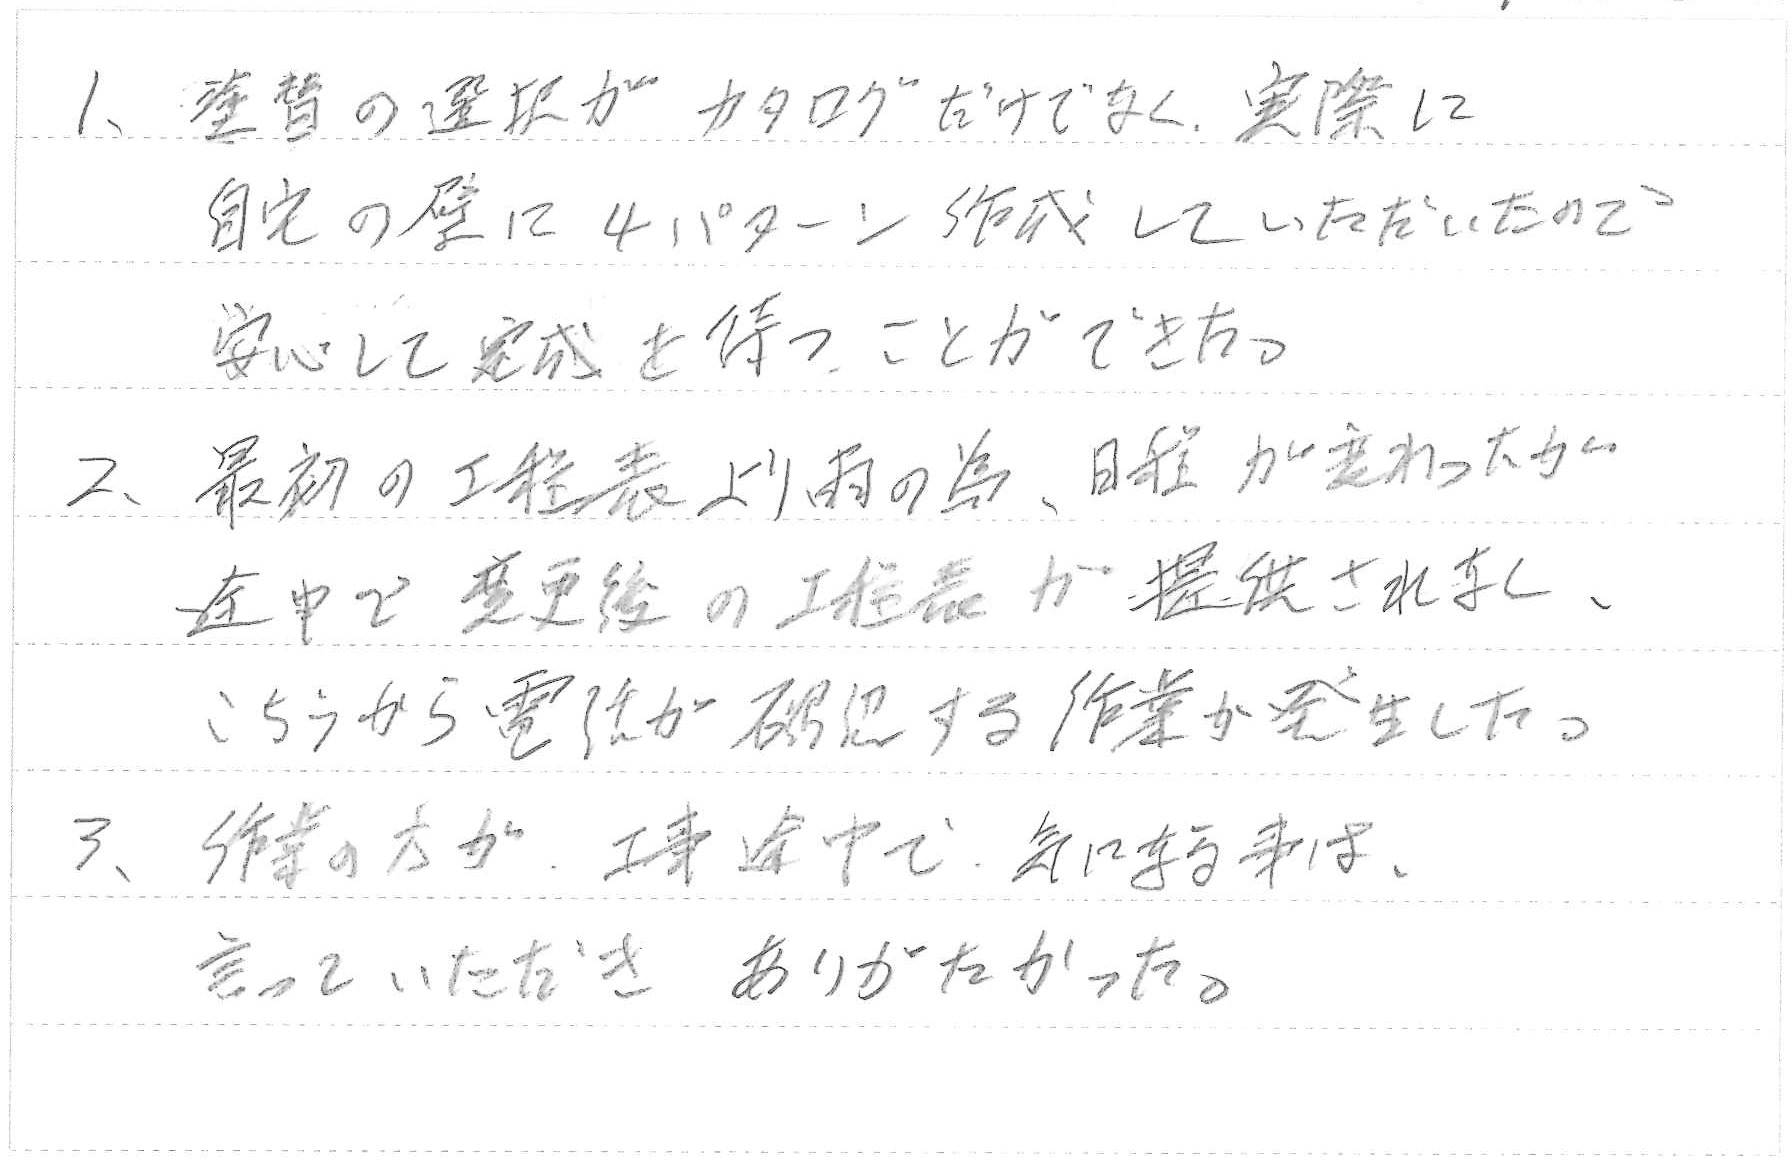 1、塗替の選択がカタログだけでなく、実際に
自宅の壁に4パターン作成していただいたので
安心して完成を待つことができた。
2、最初の工程表より雨の為、日程が変わったが
途中で変更後の工程表が提供されなく、
こちらから電話が確認する作業が発生した。
3、作業の方が、工事途中で、気になる事は、
言っていただき ありがたかった。